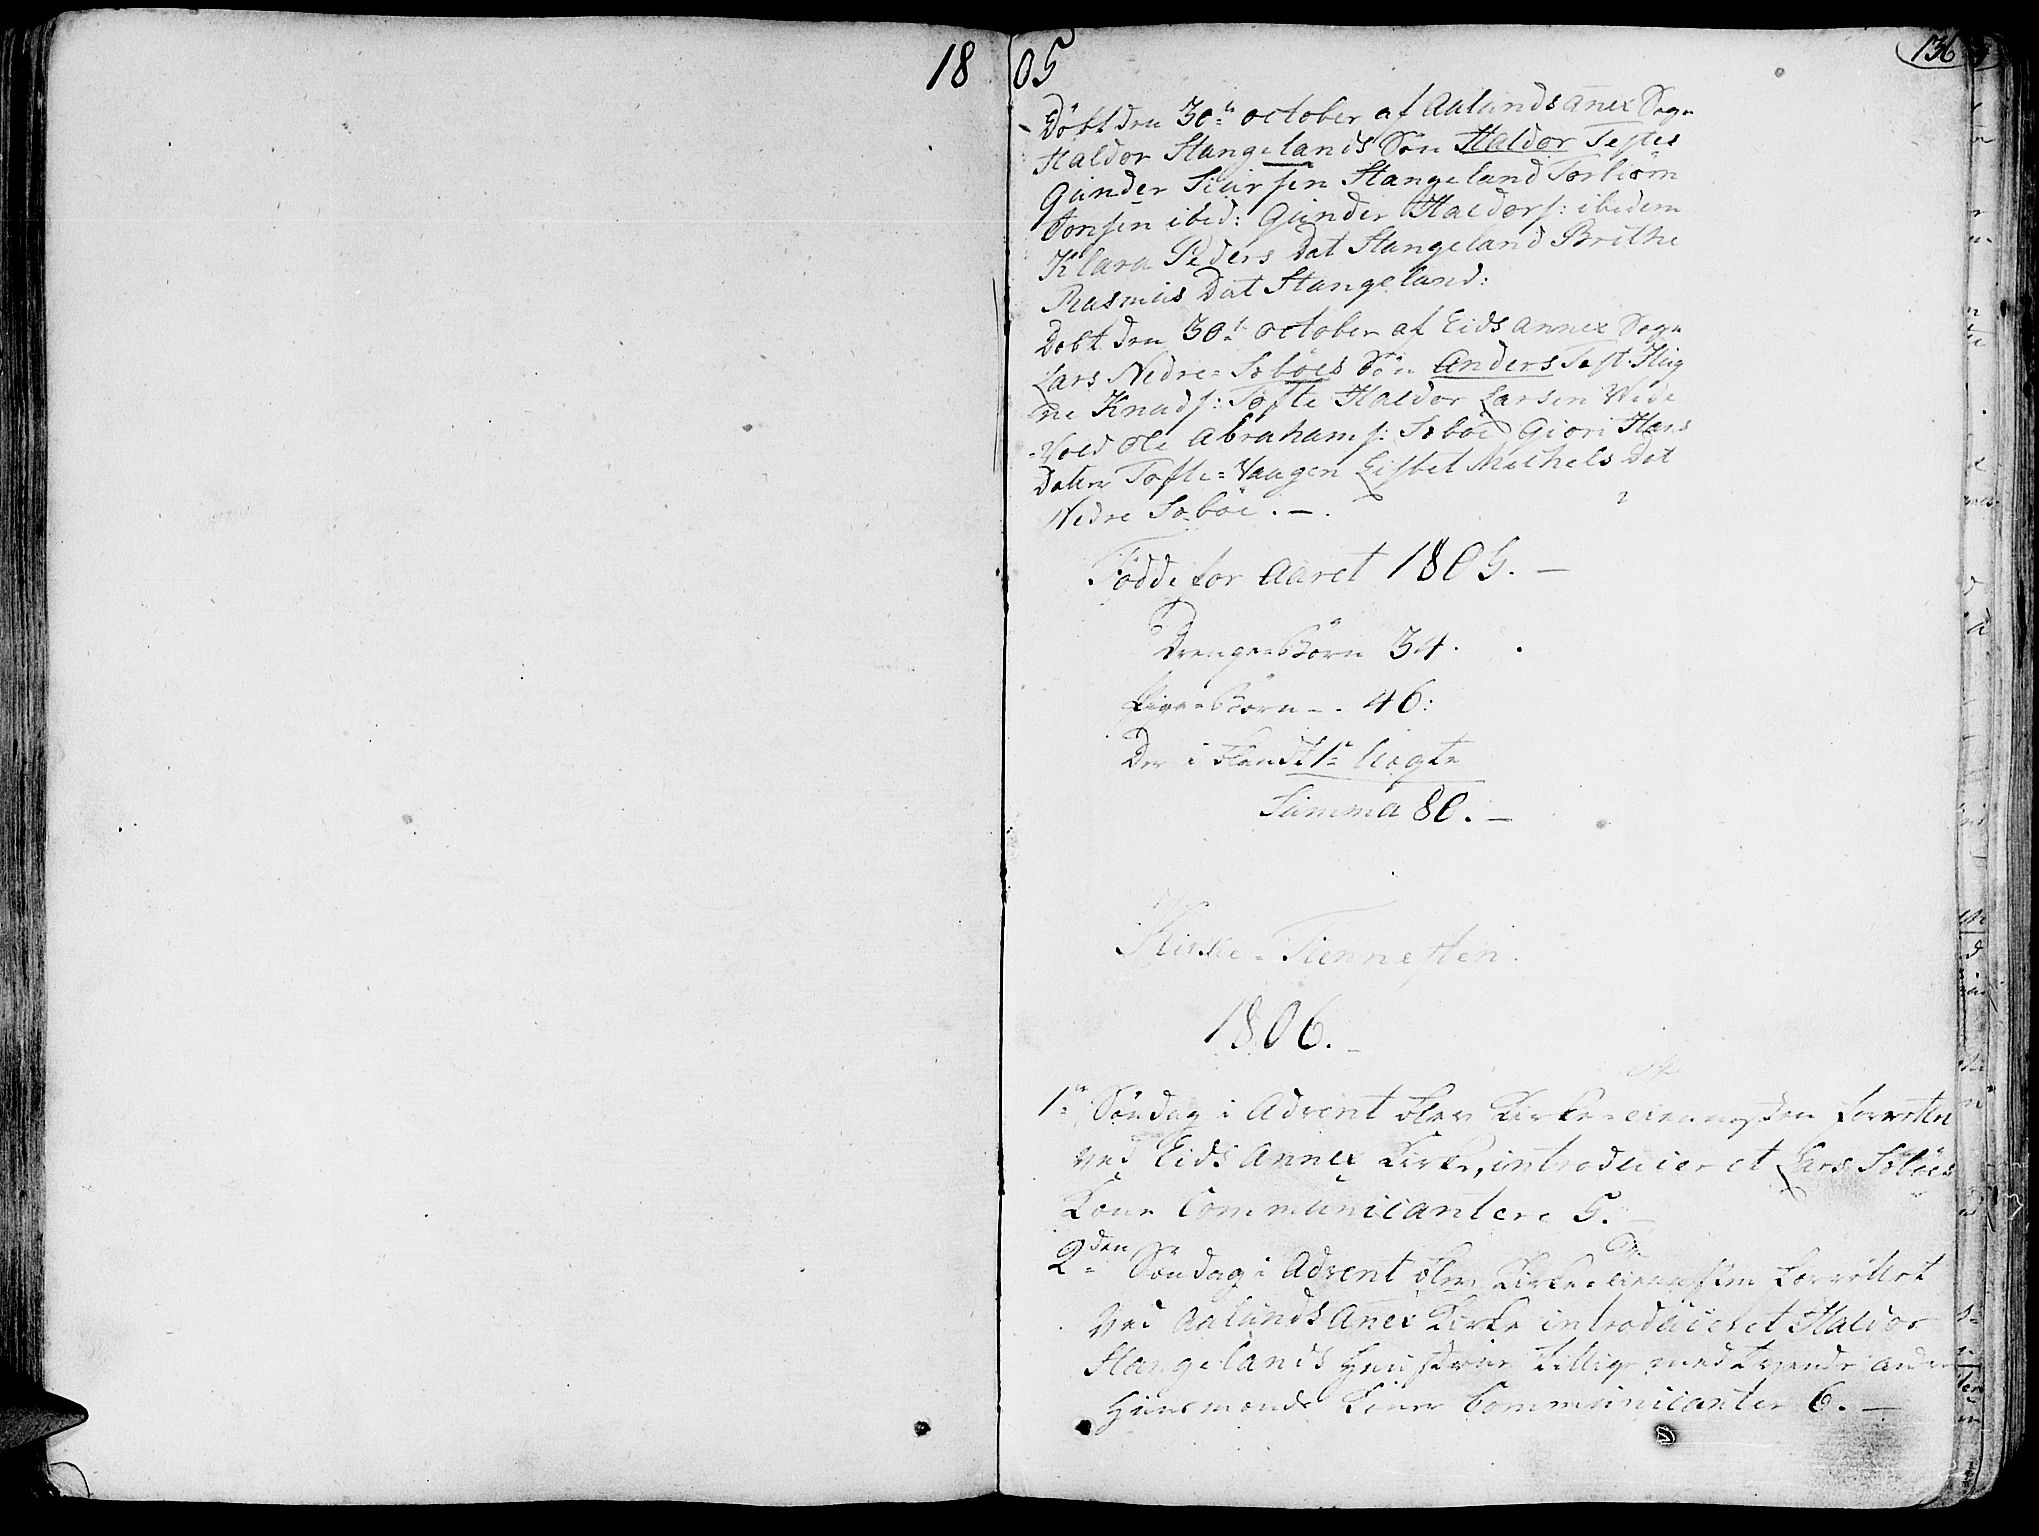 1805
136
Döbt den 30te october af Aalunds anex Sogn
Haldor Stangelands Sön Haldor Testes
Gunder Siursen Stangeland Torbiörn
Tonsen ibid: Gunder Haldors: ibidem
Klara Peders Dat Stangeland Brithe
Rasmus Dat Stangeland:
Döbt den 30t october af Eids annex Sogn
Lars Nedre=Söböes Sön Anders Test. Hug
ne Knuds: Tofte Haldor Larsen Wede
=Vold Ole Abrahams: Söböe Giori Hans
Datter Tofte=Vaagen Lisbet Michels Dat
Nedre Söböe . — .
Födde for Aaret 1805. —
Drenge=Börn 34.
Pige=Börn - . 46:
Der i blandt 1t uægte
Summa 80. —
Kirke=Tiennesten.
1806. —
1te Söndag i Advent blev Kirke=tiennesten forrettet
ved Eids Annex Kirke, introduceret Lars Söböes
Kone Communicantere 5. —
2den Söndag i Advent blev Kirke=tiennesten forrettet
ved Aalunds Anex Kirke introduceret Haldor
Stangelands Huustrue tillige med tvende andre
Huusmænds Koner Communicanter 6. —